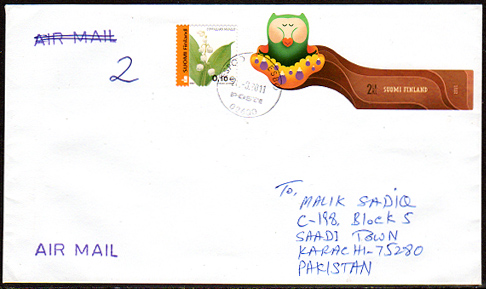 AIR MAIL
2
SUOMI Finland
0,10
2011
To,
MALIK SADIQ
C-198, Block 5
SAADI TOWN
KARACHI-75280
PAKISTAN
2
SUOMI FINLAND
AIR MAIL